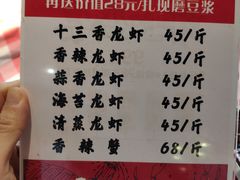 再送价值28元/扎现磨豆浆
十三香龙虾 45/斤
香辣龙虾 45/斤
蒜香龙虾 45/斤
海苔龙虾 45/斤
清蒸龙虾 45/斤
香辣蟹 68/斤